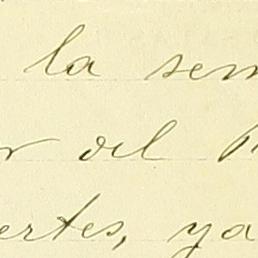 la sem
r del P
ertes, ya